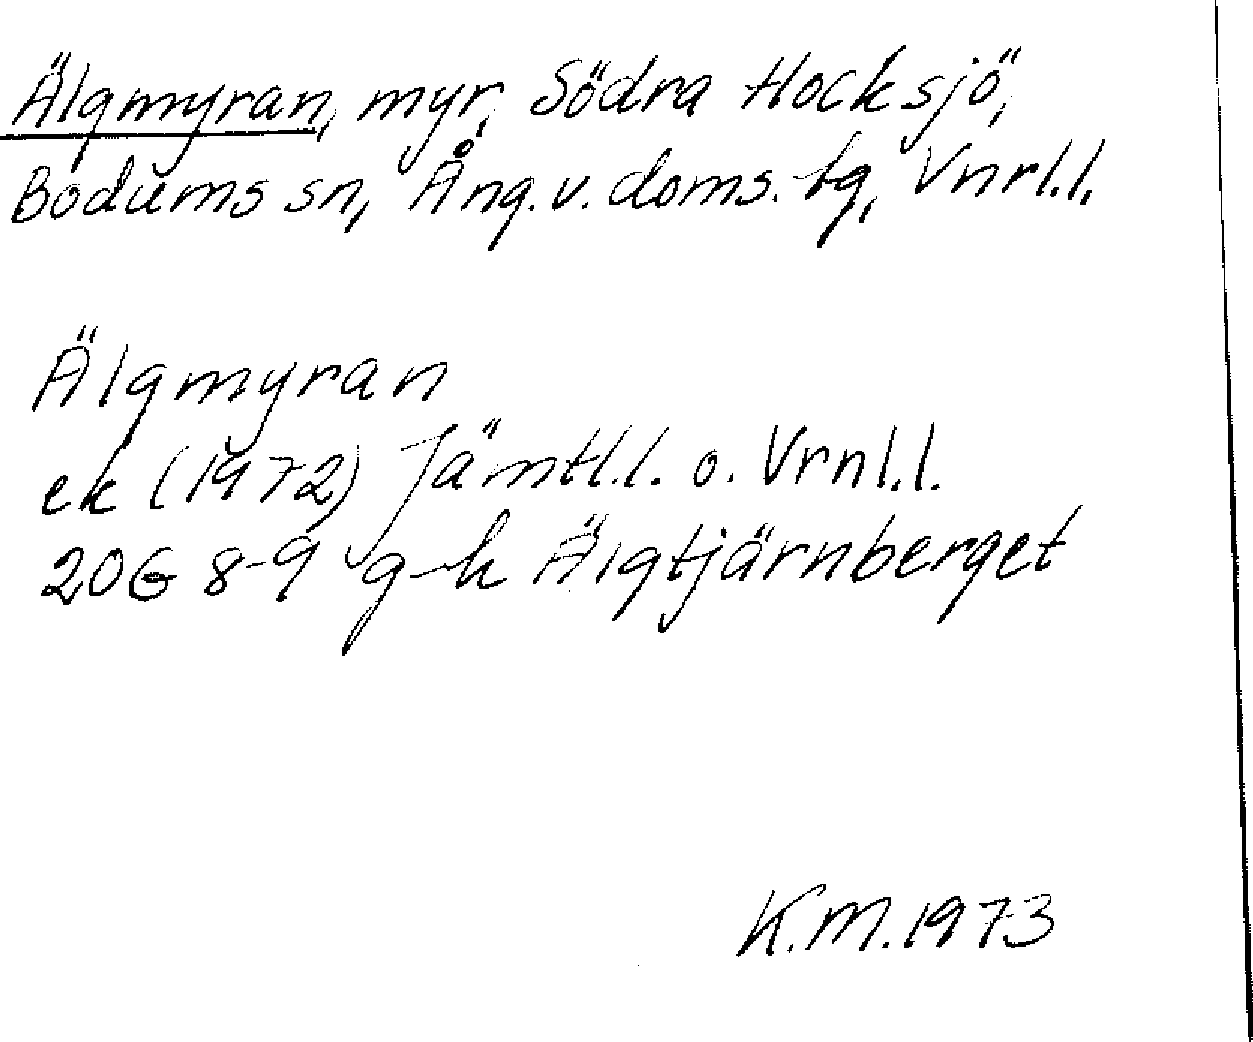 Älgmyran, myr, Södra Hocksjö,
Bodums sn, Ång.v.doms.tg, Vnrl.l.
Älgmyran
ek (1972) Jämtl.l. o. Vrnl.l.
20G 8-9 g-h Älgtjärnberget
K.M.1973